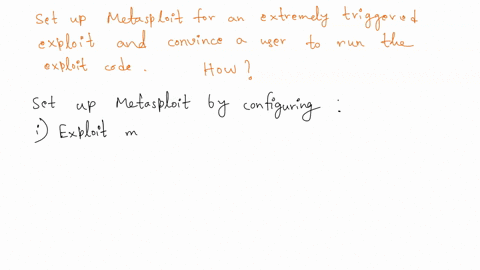 Set up Metasploit for an extremely triggered
exploit and convince a user to run the
exploit code. How?
Set up Metasploit by configuring :
i) Exploit m